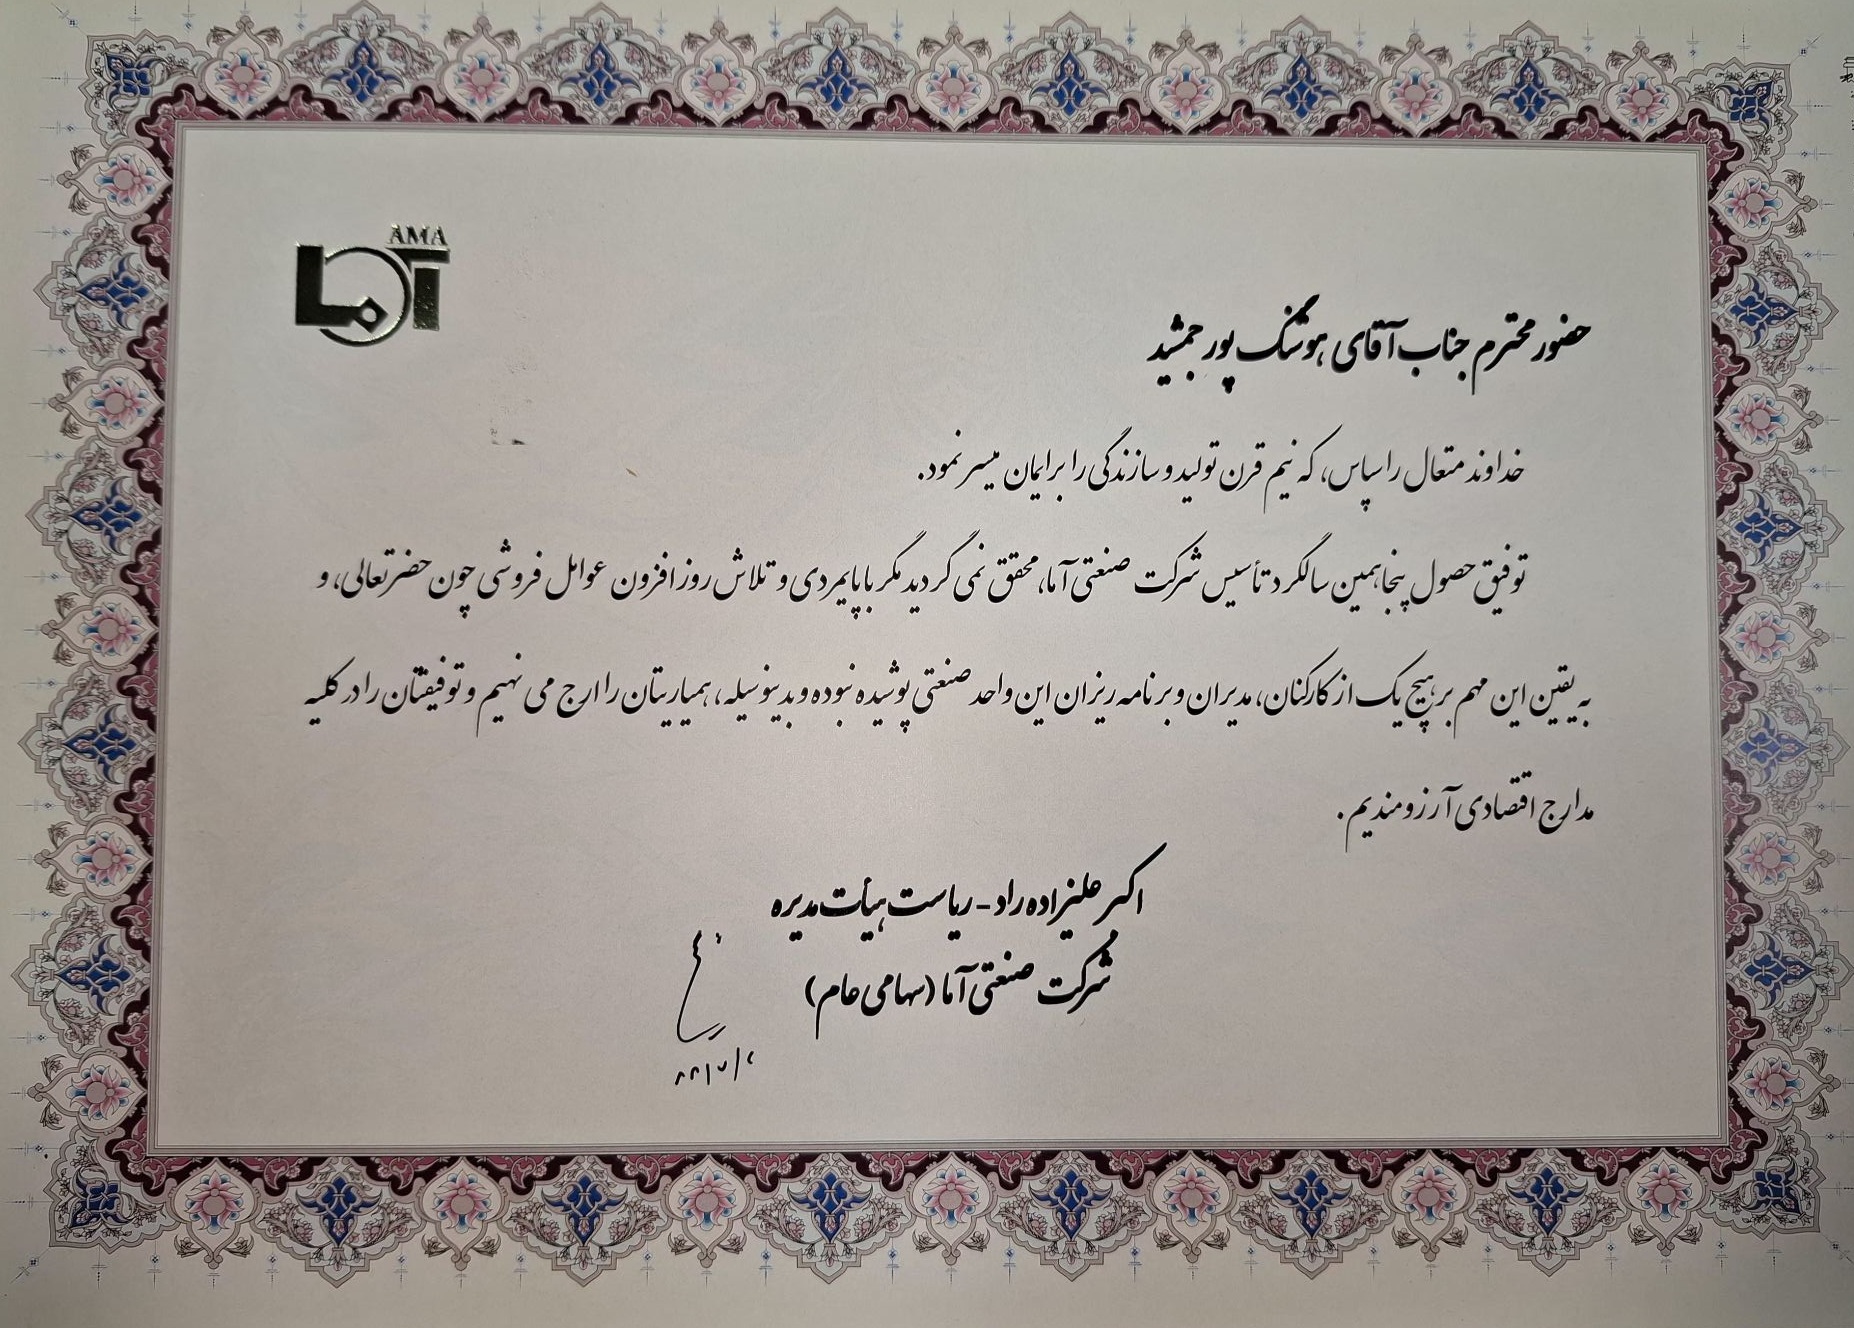 AMA
آما
حضور محترم جناب آقای هوشنگ پور جمشید
خداوند متعال را سپاس، که نیم قرن تولید و سازندگی را برایمان میسر نمود.
توفیق حصول پنجاهمین سالگرد تأسیس شرکت صنعتی آما، محقق نمی گردید مگر با پایمردی و تلاش روز افزون عوامل فروشی چون حضرتعالی، و
به یقین این مهم بر هیچ یک از کارکنان، مدیران و برنامه ریزان این واحد صنعتی پوشیده نبوده و بدینوسیله، همیاریتان را ارج می نهیم و توفیقتان را در کلیه
مدارج اقتصادی آرزومندیم.
اکبر علیزاده راد - ریاست هیأت مدیره
شرکت صنعتی آما (سهامی عام)